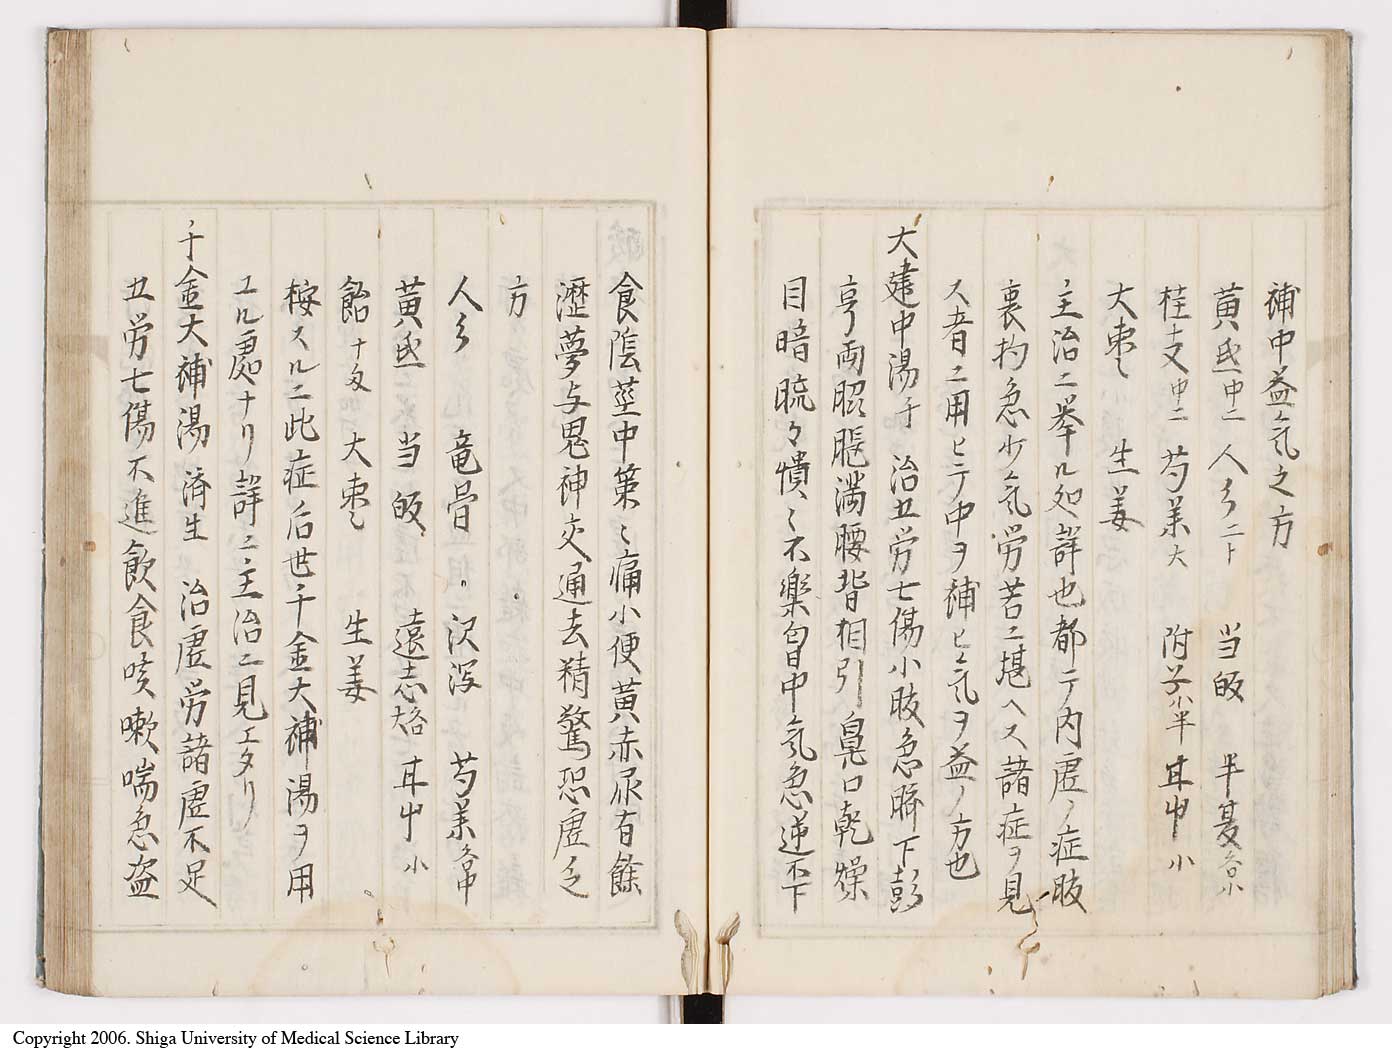 補中益気之方
黄芪中二 人参二ト 当皈 半夏各小
桂支中二 芍薬大 附子小半 甘艸小
大棗 生姜
主治ニ挙ル処詳也都テ内虚ノ症肢
裏拘急少気労苦ニ堪ヘス諸症ヲ見
ス者ニ用ヒテ中ヲ補ヒ気ヲ益ノ方也
大建中湯千 治五労七傷小肢急臍下彭
亨両脇脹満腰背相引鼻口乾燥
目暗𥆧々憒々不楽胸中気急逆不下
食陰茎中策々痛小便黄赤尿有餘
瀝夢与鬼神交通去精驚恐虚乏
方
人参 竜骨 沢瀉 芍薬各中
黄芪 当皈 遠志各大 甘艸小
飴 大棗 生姜
按スルニ此症后世千金大補湯ヲ用
エル処ナリ詳ニ主治ニ見エタリ
千金大補湯済生 治虚労諸虚不足
五労七傷不進飲食咳嗽喘急盗
Copyright 2006. Shiga University of Medical Science Library